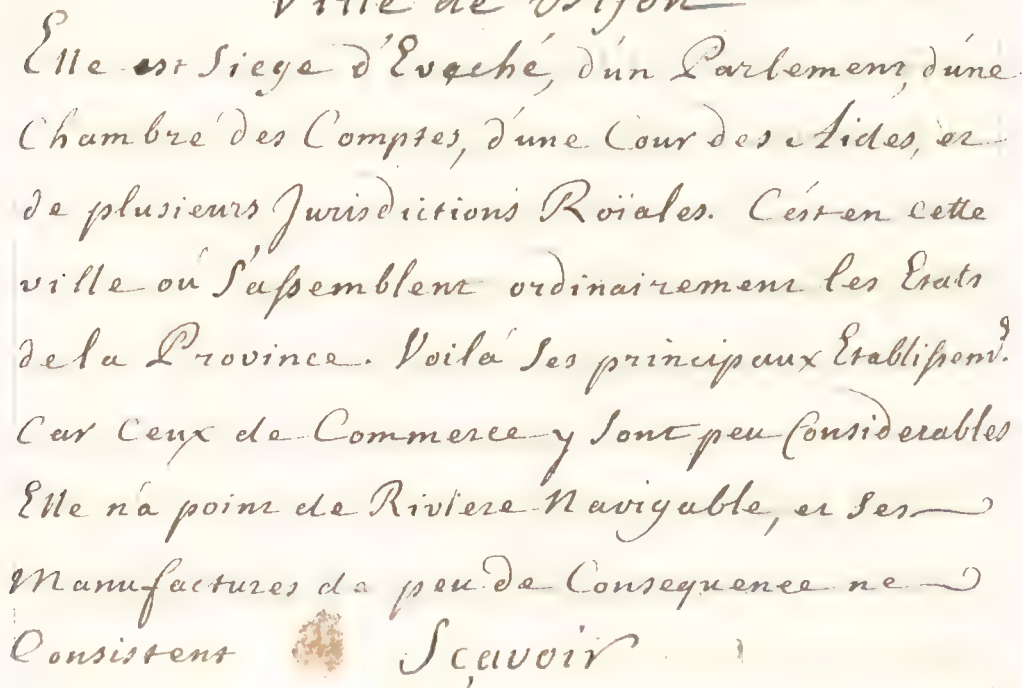 Ville de Dijon
Elle est Siege d'Evêché, d'un Parlement, d'une
Chambre des Comptes, d'une Cour des Aides, et
de plusieurs Jurisdictions Roïales. C'est en cette
ville où S'assemblent ordinairement les Etats
de la Province. Voilá Ses principaux Etablissem.s
Car Ceux de Commerce y Sont peu Considerables
Elle n'a point de Riviere Navigable, et Ses
Manufactures de peu de Consequence ne
Consistent Sçavoir